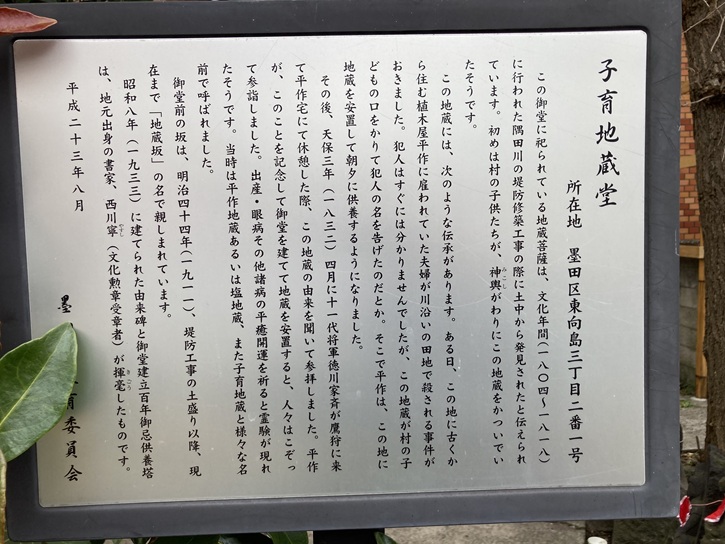 子育地蔵堂
所在地 墨田区東向島三丁目二番一号
この御堂に祀られている地蔵菩薩は、文化年間(一八〇四~一八一八)
に行われた隅田川の堤防修築工事の際に土中から発見されたと伝えられ
ています。初めは村の子供たちが、神輿がわりにこの地蔵をかついでい
たそうです。
この地蔵には、次のような伝承があります。ある日、この地に古くか
ら住む植木屋平作に雇われていた夫婦が川沿いの田地で殺される事件が
おきました。犯人はすぐには分かりませんでしたが、この地蔵が村の子
どもの口をかりて犯人の名を告げたのだとか。そこで平作は、この地に
地蔵を安置して朝夕に供養するようになりました。
その後、天保三年(一八三二)四月に十一代将軍徳川家斉が鷹狩に来
て平作宅にて休憩した際、この地蔵の由来を聞いて参拝しました。平作
が、このことを記念して御堂を建てて地蔵を安置すると、人々はこぞっ
て参詣しました。出産・眼病その他諸病の平癒開運を祈ると霊験が現れ
たそうです。当時は平作地蔵あるいは塩地蔵、また子育地蔵と様々な名
前で呼ばれました。
御堂前の坂は、明治四十四年(一九一一)、堤防工事の土盛り以降、現
在まで「地蔵坂」の名で親しまれています。
昭和八年(一九三三)に建てられた由来碑と御堂建立百年御忌供養塔
は、地元出身の書家、西川寧(文化勲章受章者)が揮毫したものです。
平成二十三年八月
墨 育委員会